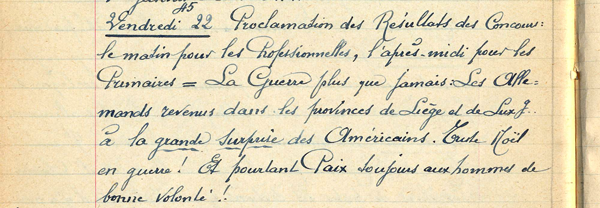 45
Vendredi 22 Proclamation des Résultats des Concours:
le matin pour les Professionnelles, l'après-midi pour les
Primaires = La Guerre plus que jamais: Les Alle-
mands revenus dans les provinces de Liège et de Lux.g.
à la grande surprise des Américains. Triste Noël
en guerre! Et pourtant Paix toujours aux hommes de
bonne volonté!!